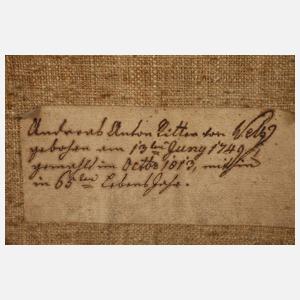 Andreas Anton Ritter von Welz
gebohren am 13ten Juny 1749
gemahlt im Octbr 1813, mithin
in 65ten Lebens Jahr.